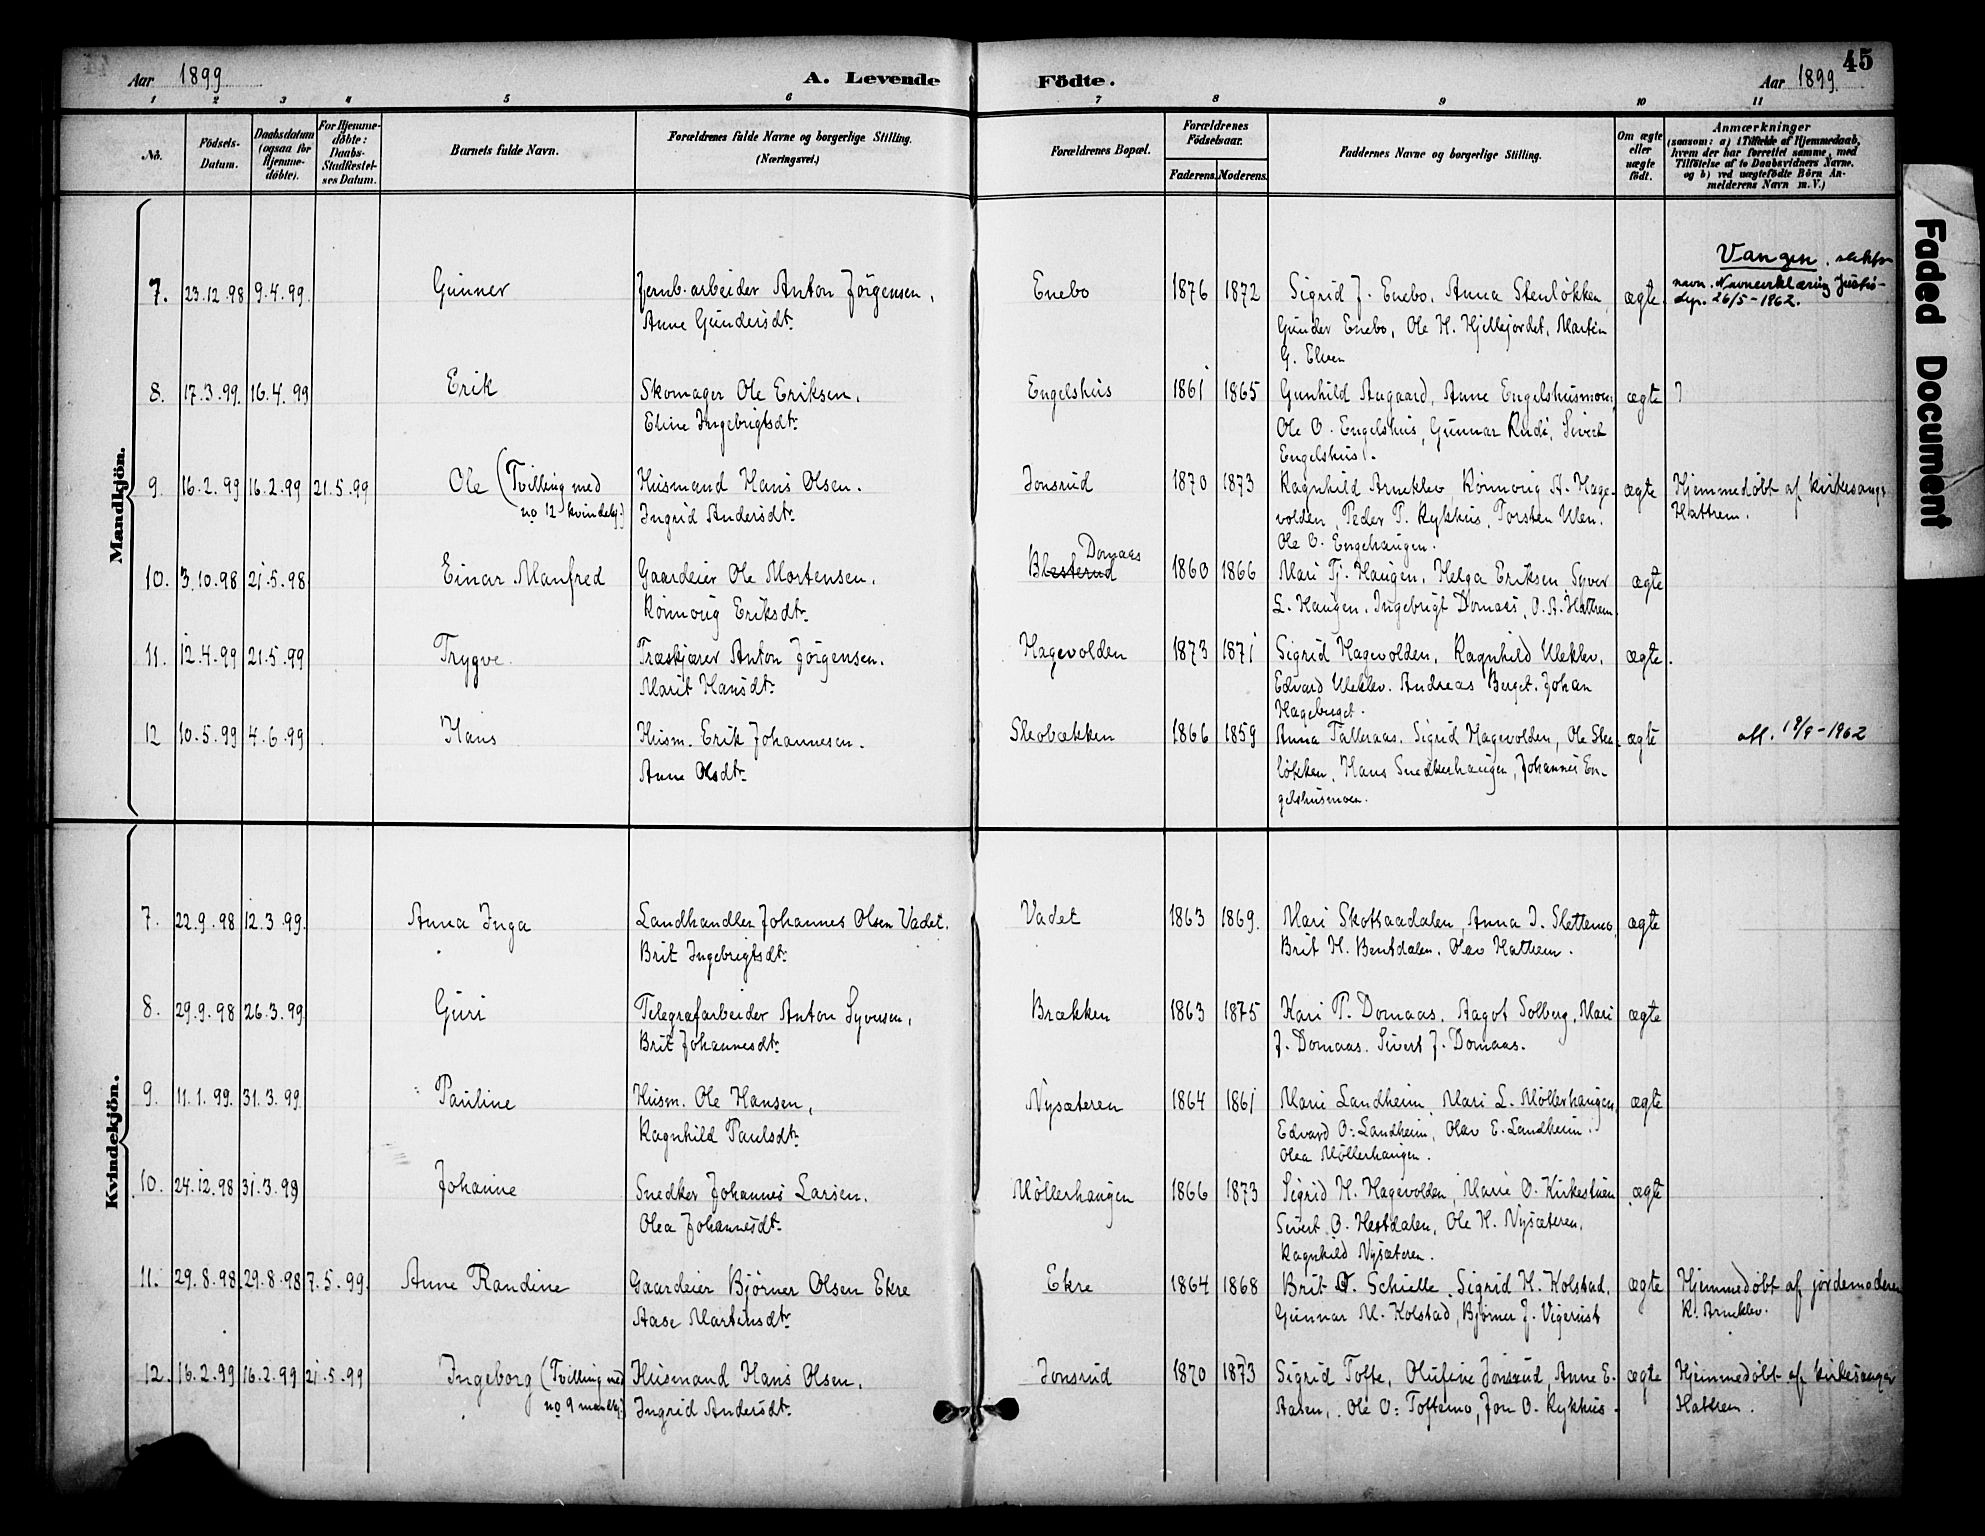 45
Aar 1899
A. Levende Födte.
Aar 1899
1 2 3 4 5 6 7 8 9 10 11
No.
Födsels-
Datum.
Daabsdatum
(ogsaa for
Hjemme-
döbte).
For Hjemme-
döbte:
Daabs-
Stadfæstel-
ses Datum.
Barnets fulde Navn.
Forældrenes fulde Navne og borgerlige Stilling.
(Næringsvei.)
Forældrenes Bopæl.
Forældrenes
Födselsaar.
Faderens. Moderens.
Faddernes Navne og borgerlige Stilling.
Om ægte
eller
uægte
födt.
Anmærkninger
(saasom: a) i Tilfælde af Hjemmedaab,
hvem der har forrettet samme, med
Tilföielse af to Daabsvidners Navne,
og b) ved uægtefödte Börn An-
melderens Navn m. V.)
Mandkjön.
7. 23.12.98 9.4.99. Gunner
Jernb.arbeider Anton Jörgensen,
Anne Gundersdt.
Enebo 1876 1872
Sigrid J. Enebo, Anna Stenløkken,
Gunder Enebo, Ole H. Hjellejordet, Martin
G. Elven
ægte.
Vangen,
navn. Navneerklæring Justis-
dep. 26/5-1962.
8. 17.3.99. 16.4.99 Erik
Skomager Ole Eriksen,
Eline Ingebrigtsdt.
Engelshus 1861 1865
Gunhild Aagaard, Anne Engelshusmoen,
Ole O. Engelshus, Gunnar Rudi, Sivert
Engelshus.
ægte
9. 16.2.99 16.2.99 21.5.99 Ole (Tvilling med
no 12 kvindekj.)
Husmand Hans Olsen.
Ingrid Andersdt.
Jonsrud 1870 1873
Ragnhild Arneklev, Rønnovig A. Hage-
volden, Peder P. Rykhus, Torsten Ulen.
Ole O. Engehaugen.
ægte
Hjemmedøbt af kirkesang.
Hattrem.
10. 3.10.98 21.5.98 Einar Manfred
Gaardeier Ole Mortensen,
Rønnovig Eriksdt.
Domaas
Blesterud 1860 1866
Mari Tj. Haugen, Helga Eriksen Syver
L. Haugen, Ingebrigt Domaas, O. A. Hattrem.
ægte
11. 12.4.99 21.5.99 Trygve.
Træskjærer Anton Jörgensen.
Marit Hansdt.
Hagevolden 1873 1871
Sigrid Hagevolden, Ragnhild Uleklev,
Edvard Uleklev. Andreas Berget. Johan
Hageberget.
ægte.
12 10.5.99 4.6.99 Hans
Husm. Erik Johannesen.
Anne Olsdt.
Skobækken 1866 1859
Anna Talleraas, Sigrid Hagevolden, Ole
løkken, Hans Snedkerhaugen, Johannes En-
gelshusmoen.
ægte
att. 18/9-1962
Kvindekjön.
7. 22.9.98 12.3.99. Anna Inga
Landhandler Johannes Olsen Vadet.
Brit Ingebrigtsdt.
Vadet 1863 1869.
Mari Skottaadalen, Anna I. Slettemo,
Brit H. Bentdalen, Olav Hattrem.
ægte
8. 29.9.98 26.3.99 Guri
Telegrafarbeider Anton Syversen,
Brit Johannesdt.
Brækken 1863 1875
Kari P. Domaas. Aagot Solberg, Mari
J. Domaas. Sivert J. Domaas.
ægte
9. 11.1.99. 31.3.99 Pauline
Husm. Ole Hansen,
Ragnhild Paulsdt.
Nysæteren 1864 1861
Marie Landheim, Mari L. Möllerhaugen,
Edvard O. Landheim, Olav E. Landheim.
Olea Möllerhaugen.
ægte
10. 24.12.98 31.3.99 Johanne
Snedker Johannes Larsen.
Olea Johannesdt.
Möllerhaugen 1866 1873
Sigrid H. Hagevolden, Marie O. Kirkestuen
Sivert O. Hestdalen, Ole H. Nysæteren,
Ragnhild Nysæteren.
ægte
11. 29.8.98. 29.8.98 7.5.99. Anne Randine
Gaardeier Bjørner Olsen Ekre
Aase Martensdt.
Ekre 1864 1868
Brit O. Schielle, Sigrid H. Kolstad,
Gunnar M. Kolstad, Bjørner J. Vigerust
ægte
Hjemmedøbt af jordemoderen
K. Arneklev.
12. 16.2.99 16.2.99 21.5.99 Ingeborg (Tvilling med
no 9 mandkj.)
Husmand Hans Olsen,
Ingrid Andersdt.
Jonsrud 1870 1873
Sigrid Tofte, Olufine Jonsrud, Anne E.
Aasen, Ole O. Toftemo, Jon O. Rykhus.
ægte
Hjemmedøbt af kirkesanger
Hattrem.
Faded Document